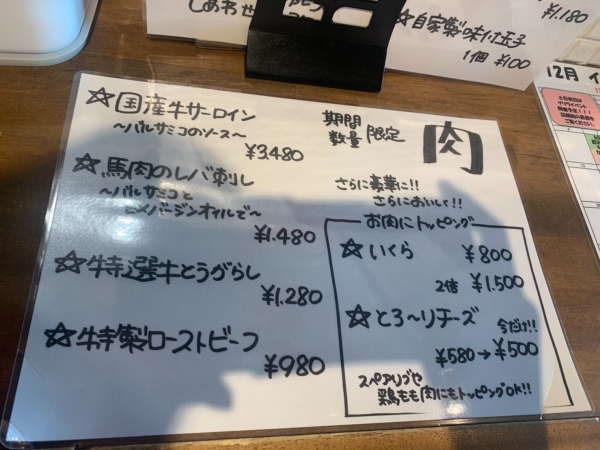 しあわせ
☆自家製味付玉子
¥1,180
1個 ¥100
12月
☆国産牛サーロイン
〜バルサミコのソース〜
¥3,480
期間
数量
限定
肉
☆馬肉のレバ刺し
〜バルサミコと
¥1,480
さらに豪華に!!
さらにおいしく!!
お肉にトッピング
☆いくら ¥800
2倍 ¥1,500
☆とろ〜りチーズ 今だけ!!
¥580→¥500
スペアリブや
鶏もも肉にもトッピングOK!!
☆特選牛とうがらし
¥1,280
☆特製ローストビーフ
¥980